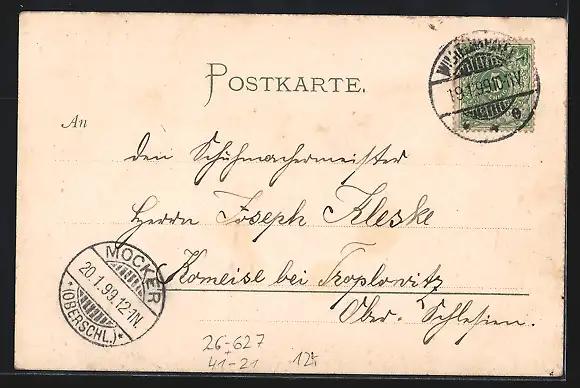 POSTKARTE.
19.1.99.10-11V.
An
den Schuhmachermeister
Herrn Joseph Kleske
Komeise bei Troplowitz
Ober-Schlesien.
MOCKER
20.1.99.12-1N.
*(OBERSCHL.)*
26-627
41-21